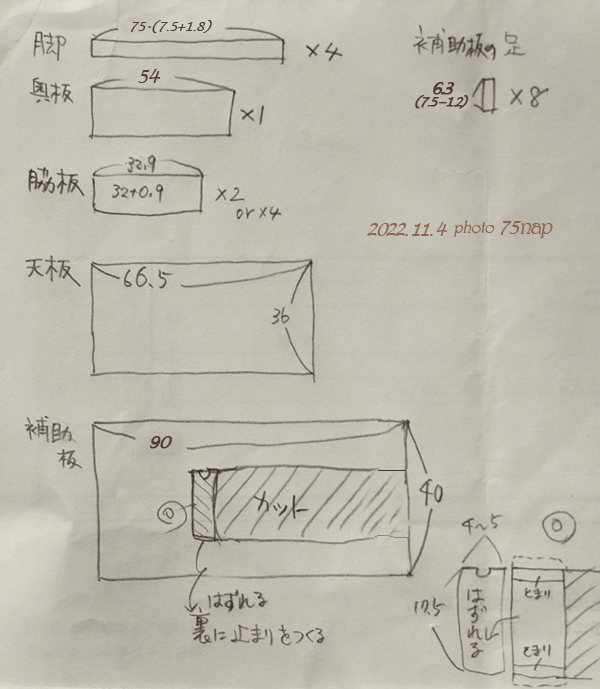 脚 75-(7.5+1.8) ×4
補助板の足 6.3 (7.5-1.2) ×8
奥板 54 ×1
脇板 32.9 32+0.9 ×2
or ×4
2022.11.4 photo 75nap
天板 66.5
36
補助板 90
40
カット
◎
はずれる
裏に止まりをつくる
4~5 ◎
17.5 はずれる とまり
とまり